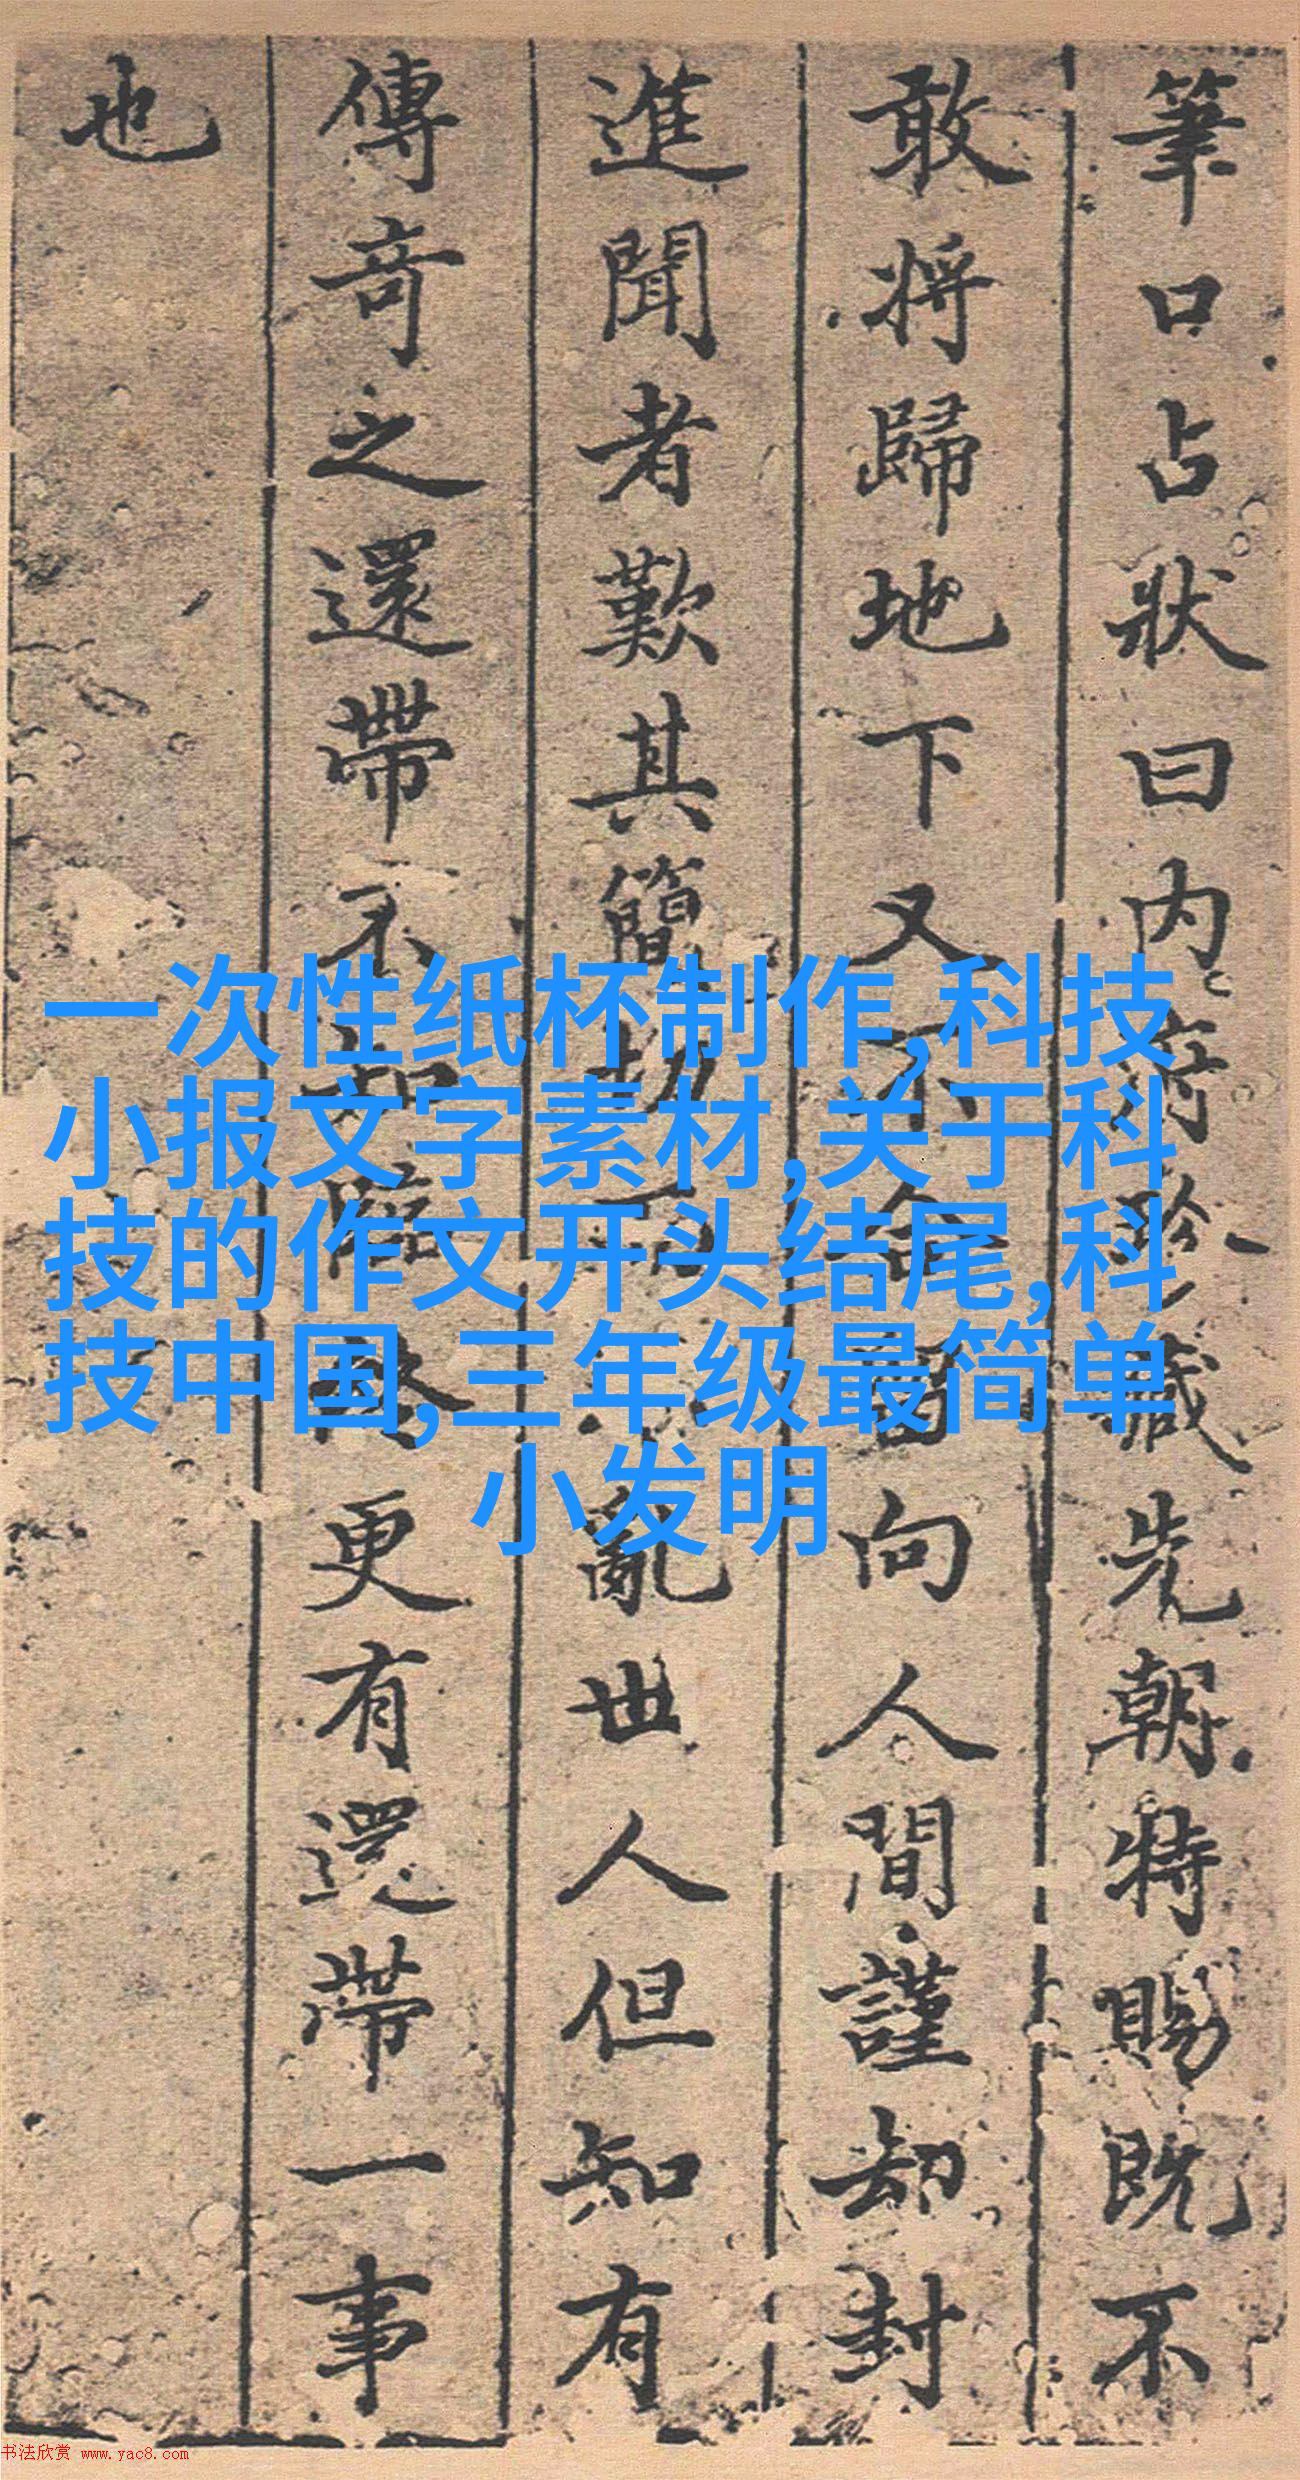 筆口占狀曰内府珎藏先朝特賜既不
敢將歸地下又不合留向人間謹却封
進聞者歎其簡切而不亂世人但知有
傳奇之還帶不知臨終更有還帶一事
也
一次性纸杯制作,科技
小报文字素材,关于科
技的作文开头结尾,科
技中国,三年级最简单
小发明
书法欣赏 www.yac8.com